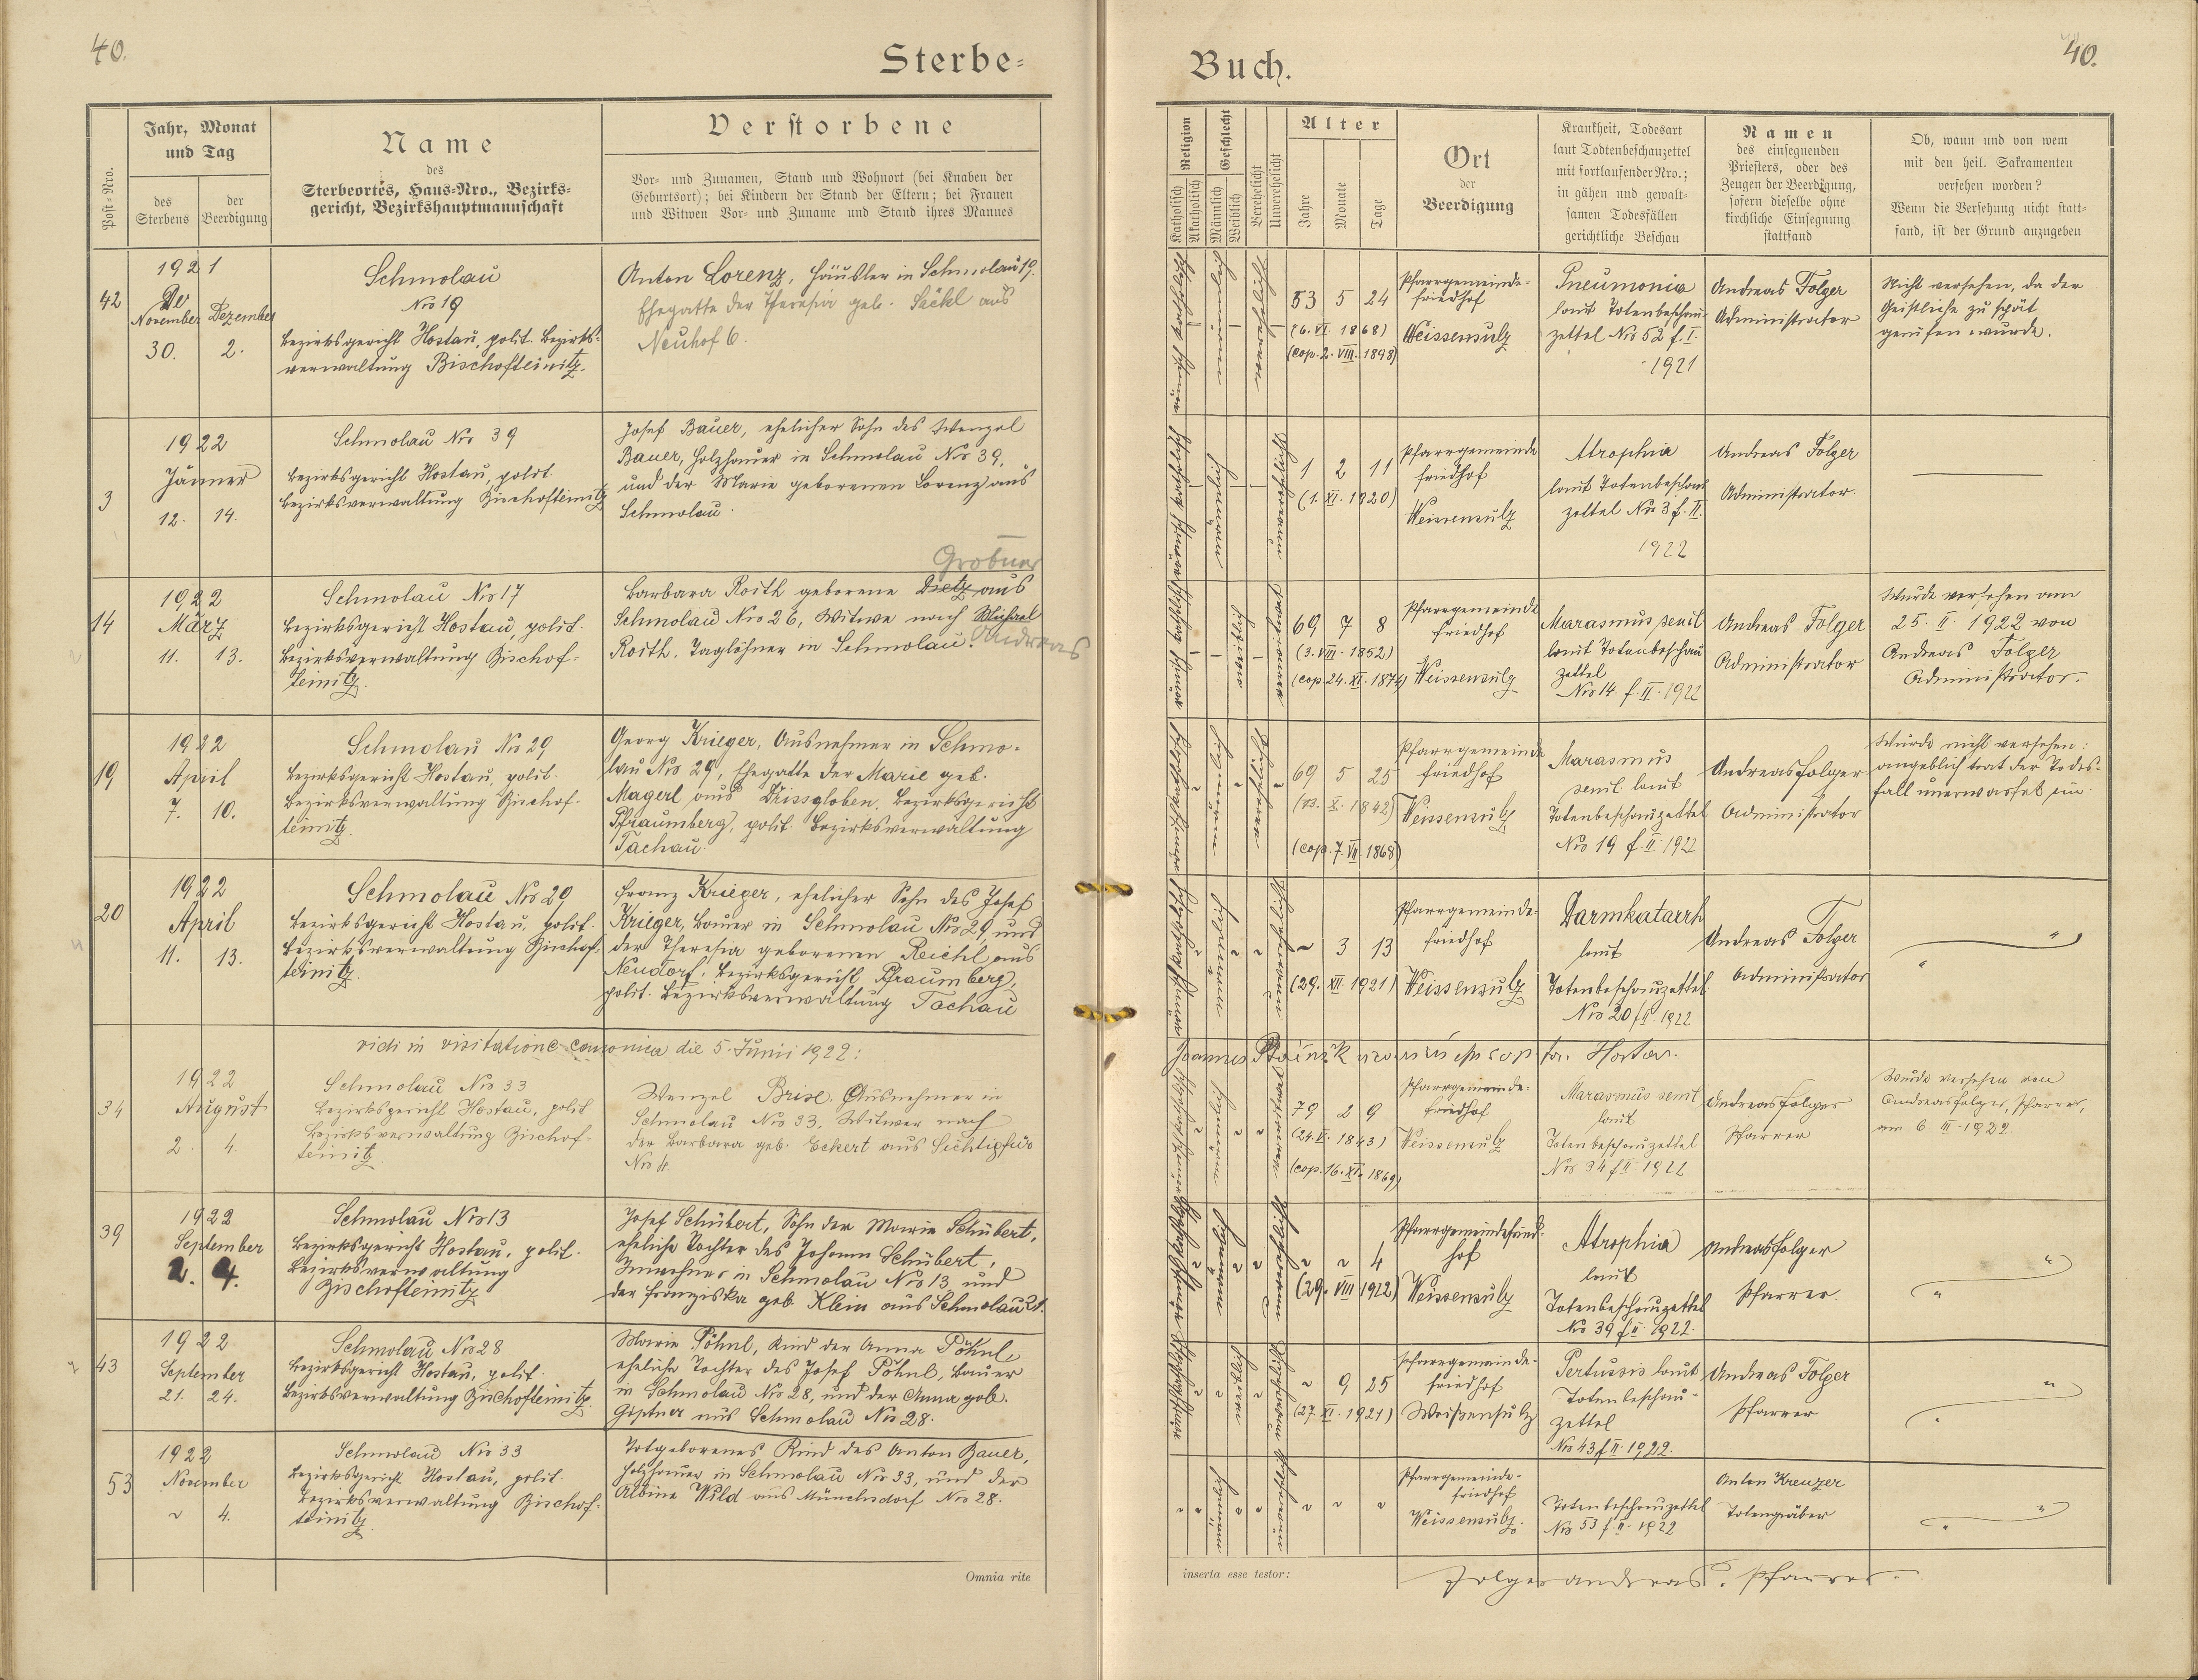 40.
Sterbe-
Jahr, Monat
und Tag
Post-Nro.
des
Sterbens
der
Beerdigung
Name
des
Sterbeortes, Haus-Nro., Bezirks-
gericht, Bezirkshauptmannschaft
Verstorbene
Vor- und Zunamen, Stand und Wohnort (bei Knaben der
Geburtsort); bei Kindern der Stand der Eltern; bei Frauen
und Witwen Vor- und Zuname und Stand ihres Mannes
42
1921
November Dezember
30. 2.
Schmolau
Nro 19
Bezirksgericht Hostau, polit. Bezirks-
verwaltung Bischofteinitz.
Anton Lorenz, Häusler in Schmolau 19.
Ehegatte der Theresia geb. Säckl aus
Neuhof 6.
3
1922
Jänner
12. 14.
Schmolau Nro 39
Bezirksgericht Hostau, polit.
Bezirksverwaltung Bischofteinitz
Josef Bauer, ehelicher Sohn des Wenzel
Bauer, Holzhauer in Schmolau Nro 39,
und der Marie geborenen Lorenz aus
Schmolau.
14
1922
März
11. 13.
Schmolau Nro 17
Bezirksgericht Hostau, polit.
Bezirksverwaltung Bischof-
teinitz.
Grobner
Barbara Roith geborene Dietz aus
Schmolau Nro 26, Witwe nach Michael
Roith, Taglöhner in Schmolau. Andreas
19
1922
April
7. 10.
Schmolau Nro 29
Bezirksgericht Hostau, polit.
Bezirksverwaltung Bischof-
teinitz.
Georg Krieger, Ausnehmer in Schmo-
lau Nro 29, Ehegatte der Marie geb.
Magerl aus Dissgloben, Bezirksgericht
Pfraumberg, polit. Bezirksverwaltung
Tachau.
20
1922
April
11. 13.
Schmolau Nro 29
Bezirksgericht Hostau, polit.
Bezirksverwaltung Bischof-
teinitz.
Franz Krieger, ehelicher Sohn des Josef
Krieger, Bauer in Schmolau Nro 29, und
der Theresia geborenen Reichl aus
Neudorf, Bezirksgericht Pfraumberg,
polit. Bezirksverwaltung Tachau
vidi in visitatione canonica die 5. Junii 1922:
34
1922
August
2. 4.
Schmolau Nro 33
Bezirksgericht Hostau, polit.
Bezirksverwaltung Bischof-
teinitz.
Wenzel Brise, Ausnehmer in
Schmolau Nro 33, Witwer nach
der Barbara geb. Eckert aus
Nro 4.
39
1922
September
2. 4.
Schmolau Nro 13
Bezirksgericht Hostau, polit.
Bezirksverwaltung
Bischofteinitz
Josef Schübert, Sohn der Marie Schübert,
eheliche Tochter des Johann Schübert,
Inwohner in Schmolau Nro 13 und
der Franziska geb. Klein aus Schmolau 21.
43
1922
September
21. 24.
Schmolau Nro 28
Bezirksgericht Hostau, polit.
Bezirksverwaltung Bischofteinitz.
Marie Pöhnl, Kind der Anna Pöhnl,
eheliche Tochter des Josef Pöhnl, Bauer
in Schmolau Nro 28, und der Anna geb.
Giptner aus Schmolau Nro 28.
53
1922
November
" 4.
Schmolau Nro 33
Bezirksgericht Hostau, polit.
Bezirksverwaltung Bischof-
teinitz.
Totgeborenes Kind des Anton Bauer,
Holzhauer in Schmolau Nro 33, und der
Albine Wild aus Münchsdorf Nro 28.
Omnia rite
Buch.
40.
Religion
Katholisch
Akatholisch
Geschlecht
Männlich
Weiblich
Verehelicht
Unverehelicht
Alter
Jahre
Monate
Tage
Ort
der
Beerdigung
Krankheit, Todesart
laut Todtenbeschauzettel
mit fortlaufender Nro.;
in gähen und gewalt-
samen Todesfällen
gerichtliche Beschau
Namen
des einsegnenden
Priesters, oder des
Zeugen der Beerdigung,
sofern dieselbe ohne
kirchliche Einsegnung
stattfand
Ob, wann und von wem
mit den heil. Sakramenten
versehen worden?
Wenn die Versehung nicht statt-
fand, ist der Grund anzugeben
53 5 24
(6. VI. 1868)
(cop. 2. VIII. 1898)
Pfarrgemeinde-
friedhof
Weissensulz
Pneumonia
laut Totenbeschau-
zettel Nro 52 f. I.
1921
Andreas Folger
Administrator
Nicht versehen, da der
Geistliche zu spät
gerufen wurde.
1 2 11
(1. XI. 1920)
Pfarrgemeinde
friedhof
Weissensulz
Atrophia
laut Totenbeschau
zettel Nro 3 f. II.
1922
Andreas Folger
Administrator.
69 7 8
(3. VIII. 1852)
(cop. 24. XI. 1874)
Pfarrgemeinde
friedhof
Weissensulz
Marasmus senil
laut Totenbeschau
zettel
Nro 14. f II. 1922
Andreas Folger
Administrator
Wurde versehen am
25. II. 1922 von
Andreas Folger
Administrator.
69 5 25
(13. X. 1842)
(cop. 7. VII. 1868)
Pfarrgemeinde
friedhof
Weissensulz
Marasmus
senil laut
Totenbeschauzettel
Nro 19 f. II. 1922
Andreas Folger
Administrator
Wurde nicht versehen:
angeblich trat der Todes-
fall unerwartet ein.
~ 3 13
(29. XII. 1921)
Pfarrgemeinde-
friedhof
Weissensulz
Darmkatarrh
laut
Totenbeschauzettel.
Nro 20 f II. 1922
Andreas Folger
Administrator
" "
Joannes
79 2 9
(24. V. 1843)
(cop. 16. XI. 1869)
Pfarrgemeinde-
friedhof
Weissensulz
Marasmus senil
laut
Totenbeschauzettel
Nro 34 f II 1922
Andreas Folger
Pfarrer
Wurde versehen von
Andreas Folger, Pfarrer,
am 6. III. 1922.
~ ~ 4
(29. VIII 1922)
Pfarrgemeindefried-
hof
Weissensulz
Atrophia
laut
Totenbeschauzettel
Nro 39 f II. 1922.
Andreas Folger
Pfarrer.
" "
~ 9 25
(27. XI. 1921)
Pfarrgemeinde-
friedhof
Weißensulz
Pertussis laut
Totenbeschau-
zettel
Nro 43 f II. 1922.
Andreas Folger
Pfarrer
" "
~ ~ ~
Pfarrgemeinde-
friedhof
Weissensulz.
Totenbeschauzettel
Nro 53 f. II. 1922
Anton Kreuzer
Totengräber
" "
inserta esse testor:
Folger Andreas, Pfarrer.